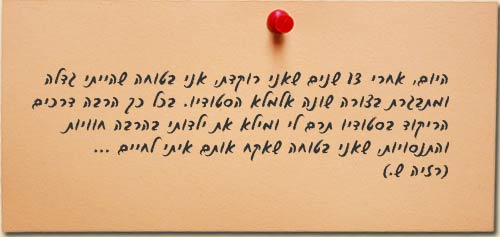 היום, אחרי 13 שנים שאני רוקדת, אני בטוחה שהייתי גדלה
ומתבגרת בצורה שונה אלמלא הסטודיו. בכל כך הרבה דרכים
הריקוד בסטודיו תרם לי ומילא את ילדותי בהרבה חוויות
והתנסויות, שאני בטוחה שאקח אותם איתי לחיים ...
(רזיה ש.)